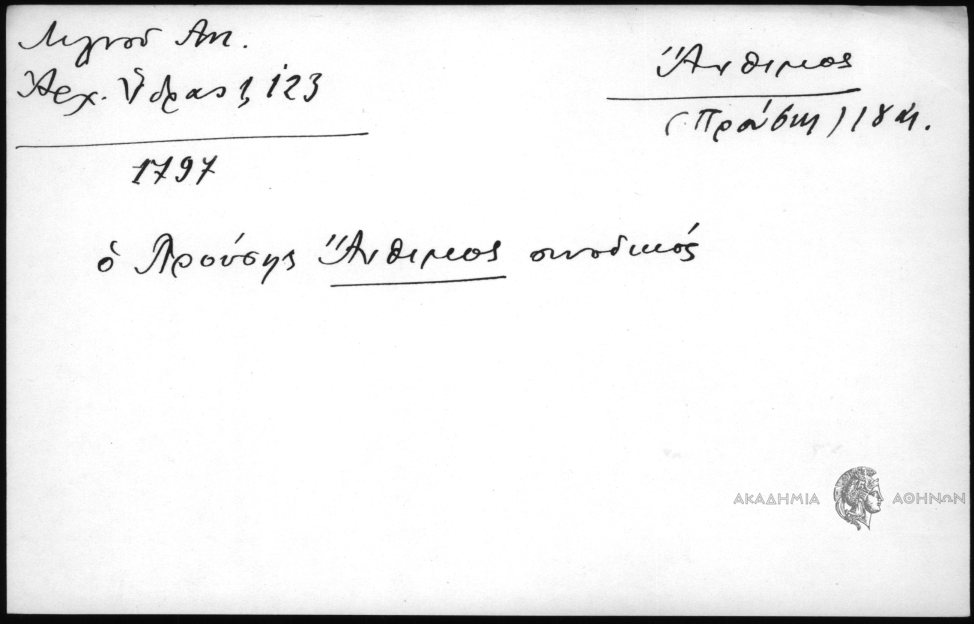 Λιγνοῦ Ἀν.
Ἀρχ. Ὕδρας 1, 123
1797
Ἄνθιμος
(Προύσης) 18 αἰ.
ὁ Προύσης Ἄνθιμος συνοδικός
ΑΚΑΔΗΜΙΑ ΑΘΗΝΩΝ